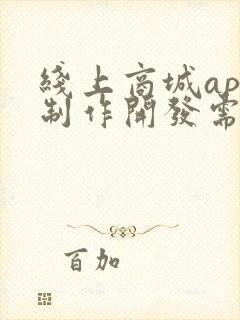 綫上商城ap
制作開發需
百加